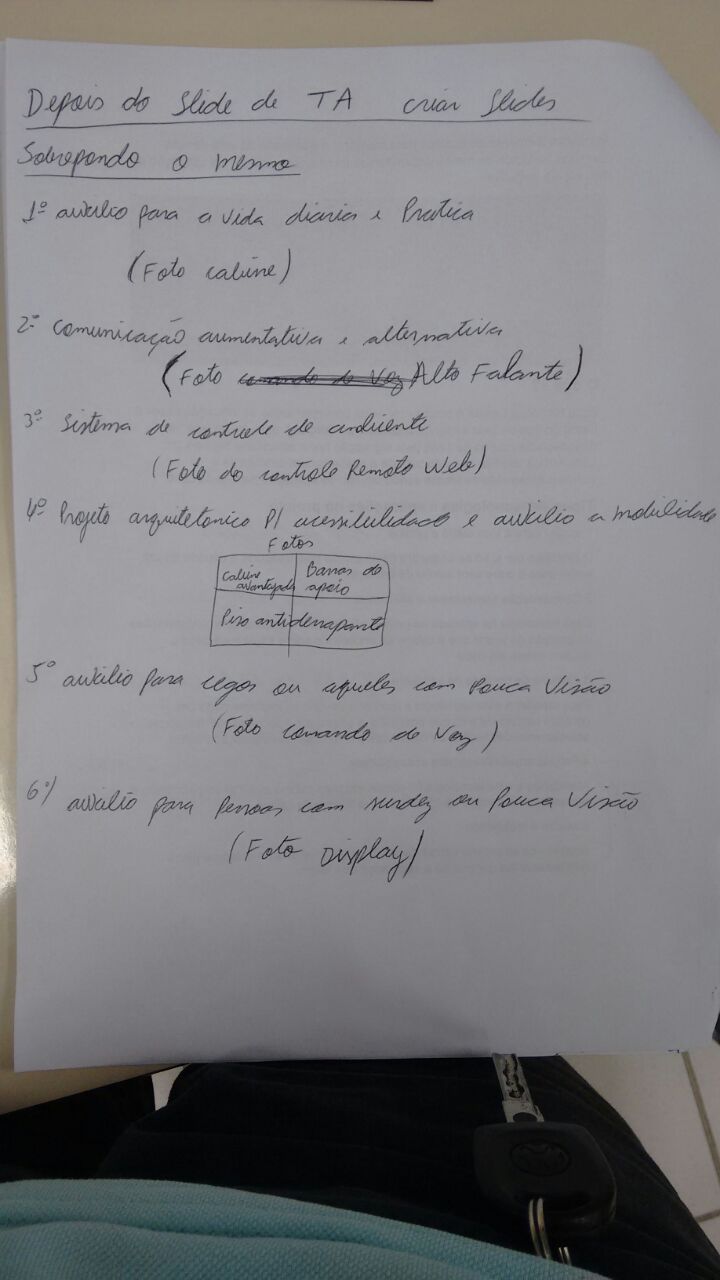 Depois do slide de TA criar slides
Sobrepondo o mesmo
1º auxílio para a vida diaria e Pratica
(Foto cabine)
2º comunicação aumentativa e alternativa
(Foto comando de voz Alto Falante)
3º sistema de controle de ambiente
(Foto do controle Remoto Web)
4º Projeto arquitetonico P/ acessibilidade e auxílio a mobilidade
Fotos
cabine avantajada
Barras de apoio
Piso antiderrapante
5º auxílio para cegos ou aqueles com Pouca Visão
(Foto comando de voz)
6º) auxílio para pessoas com surdez ou Pouca Visão
(Foto Display)